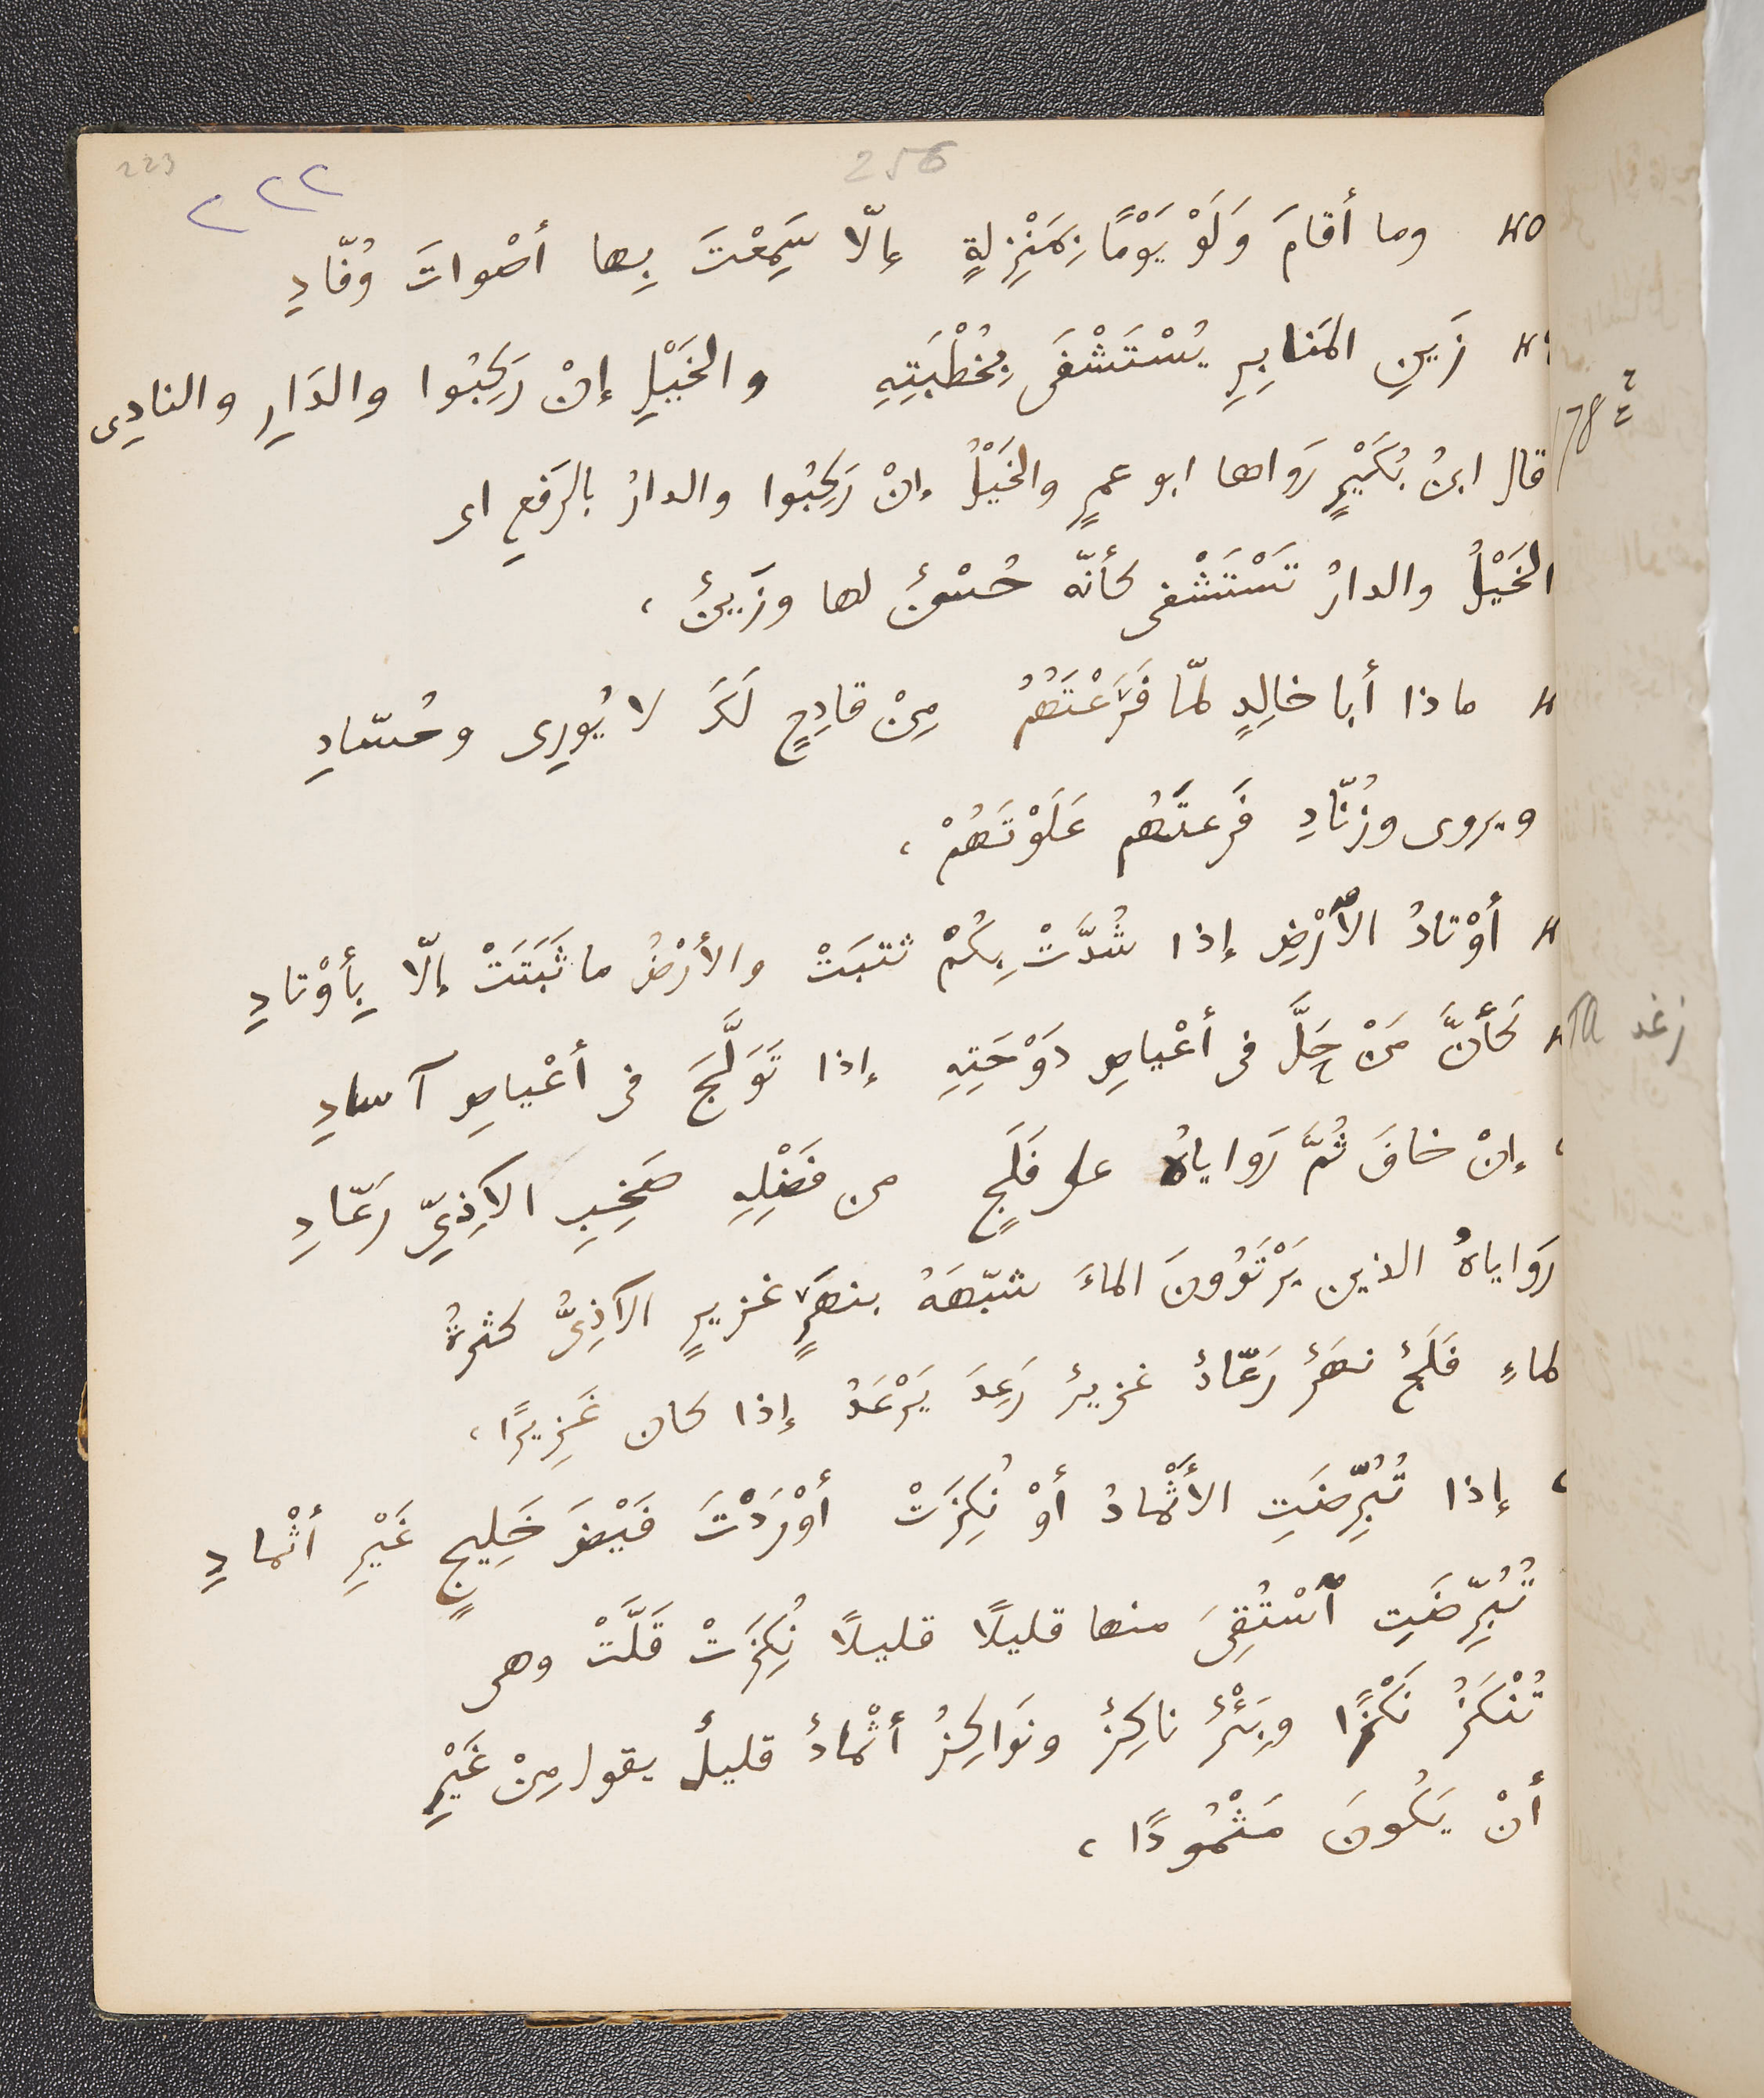 223
256
٢٢٢
وما أقامَ وَلَوْ يَوْمًا بِمَنْزِلةٍ إلّا سَمِعْتَ بِها أصْواتَ وُفّادِ
زَينِ المَنابِرِ يُسْتَشْفَى بِخُطْبَتِهِ والخَيْلِ إنْ رَكِبُوا والدَارِ والنادِى
178
قال ابنُ بُكَيْرٍ رَواها ابو عمرٍ والخَيْلُ إنْ رَكِبُوا والدارُ بالرَفعِ اى
الخَيْلُ والدارُ تَسْتَشْفى كأنّه حُسْنٌ لها وزَينٌ ،
ماذا أبا خالِدٍ لمّا فَرَعْتَهُمُ مِنْ قادِحٍ لَكَ لا يُورِى وحُسّادِ
ويروى وزُنّادِ فَرَعتَهُم عَلَوْتَهُمْ ،
أوْتادُ ٱلأرْضِ إذا شُدَّتْ بِكُمْ ثتبَتْ والأرْضُ ما ثَبَتَتْ إلّا بِأوْتادِ
كَأنَّ مَنْ حَلَّ فى أعْياصِ دَوْحَتِهِ إذا تَوَلَّجَ فى أعْياصِ آسادِ
زغد
إنْ خافَ ثُمَّ رَواياهُ على فَلَجٍ من فَضْلِهِ صَخِبِ الآذِىِّ رَعّادِ
رَواياهُ الذين يَرْتَوُونَ الماءَ شبّهَهُ بنهَرٍ غزيرٍ الآذِىُّ كثرةُ
لماءِ فَلَجٌ نهَرٌ رَعّادٌ غزيرٌ رَعِدَ يَرْعَدُ إذا كان غَزِيرًا ،
إذا تُبُرِّضَتِ الأثْمادُ أوْ نُكِزَتْ أوْرَدْتَ فَيْضَ خَلِيجٍ غَيْرِ أثْمادِ
تُبُرِّضَتِ ٱسْتُقِىَ منها قليلًا قليلًا نُكِزَتْ قَلَّتْ وهى
تُنْكَزُ نَكْزًا وبِئْرٌ ناكِزٌ ونَواكِزُ أثْمادٌ قليلٌ يقول مِنْ غَيْرِ
أنْ يَكُونَ مَثْمُودًا ،